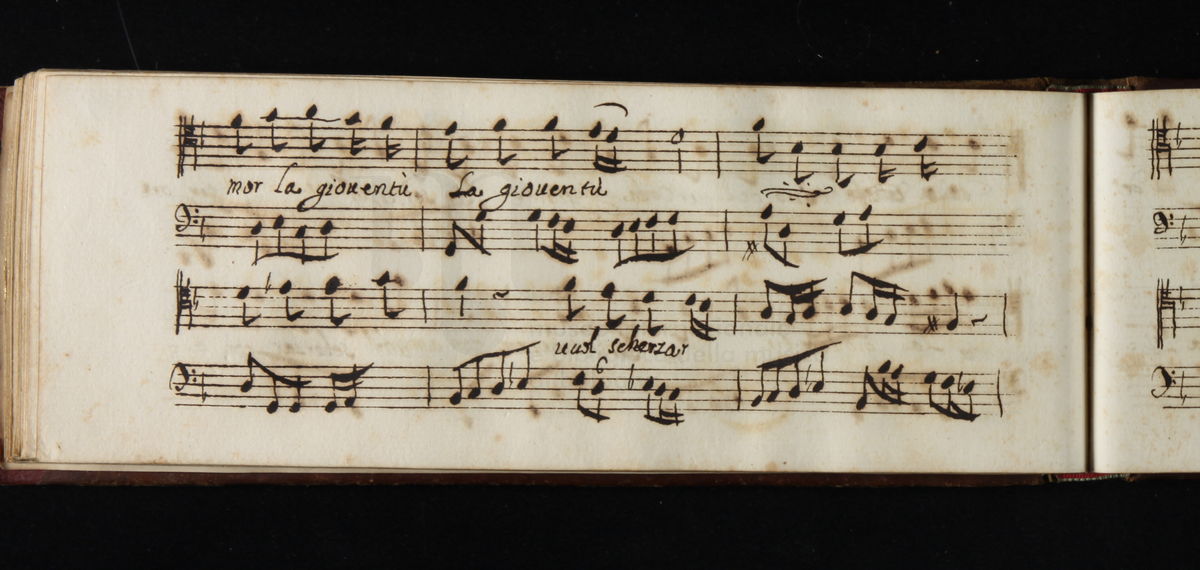 mor la giouentù la giouentù
uuol scherzar
6